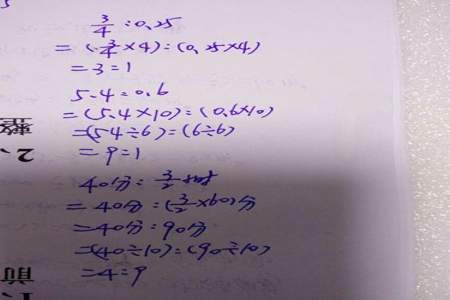 3/4 : 0.25
= (3/4 × 4) : (0.25 × 4)
= 3 : 1
5.4 : 0.6
= (5.4 × 10) : (0.6 × 10)
= (54 ÷ 6) : (6 ÷ 6)
= 9 : 1
40分 : 3/2时
= 40分 : (3/2 × 60)分
= 40分 : 90分
= (40 ÷ 10) : (90 ÷ 10)
= 4 : 9
2、整
1
前